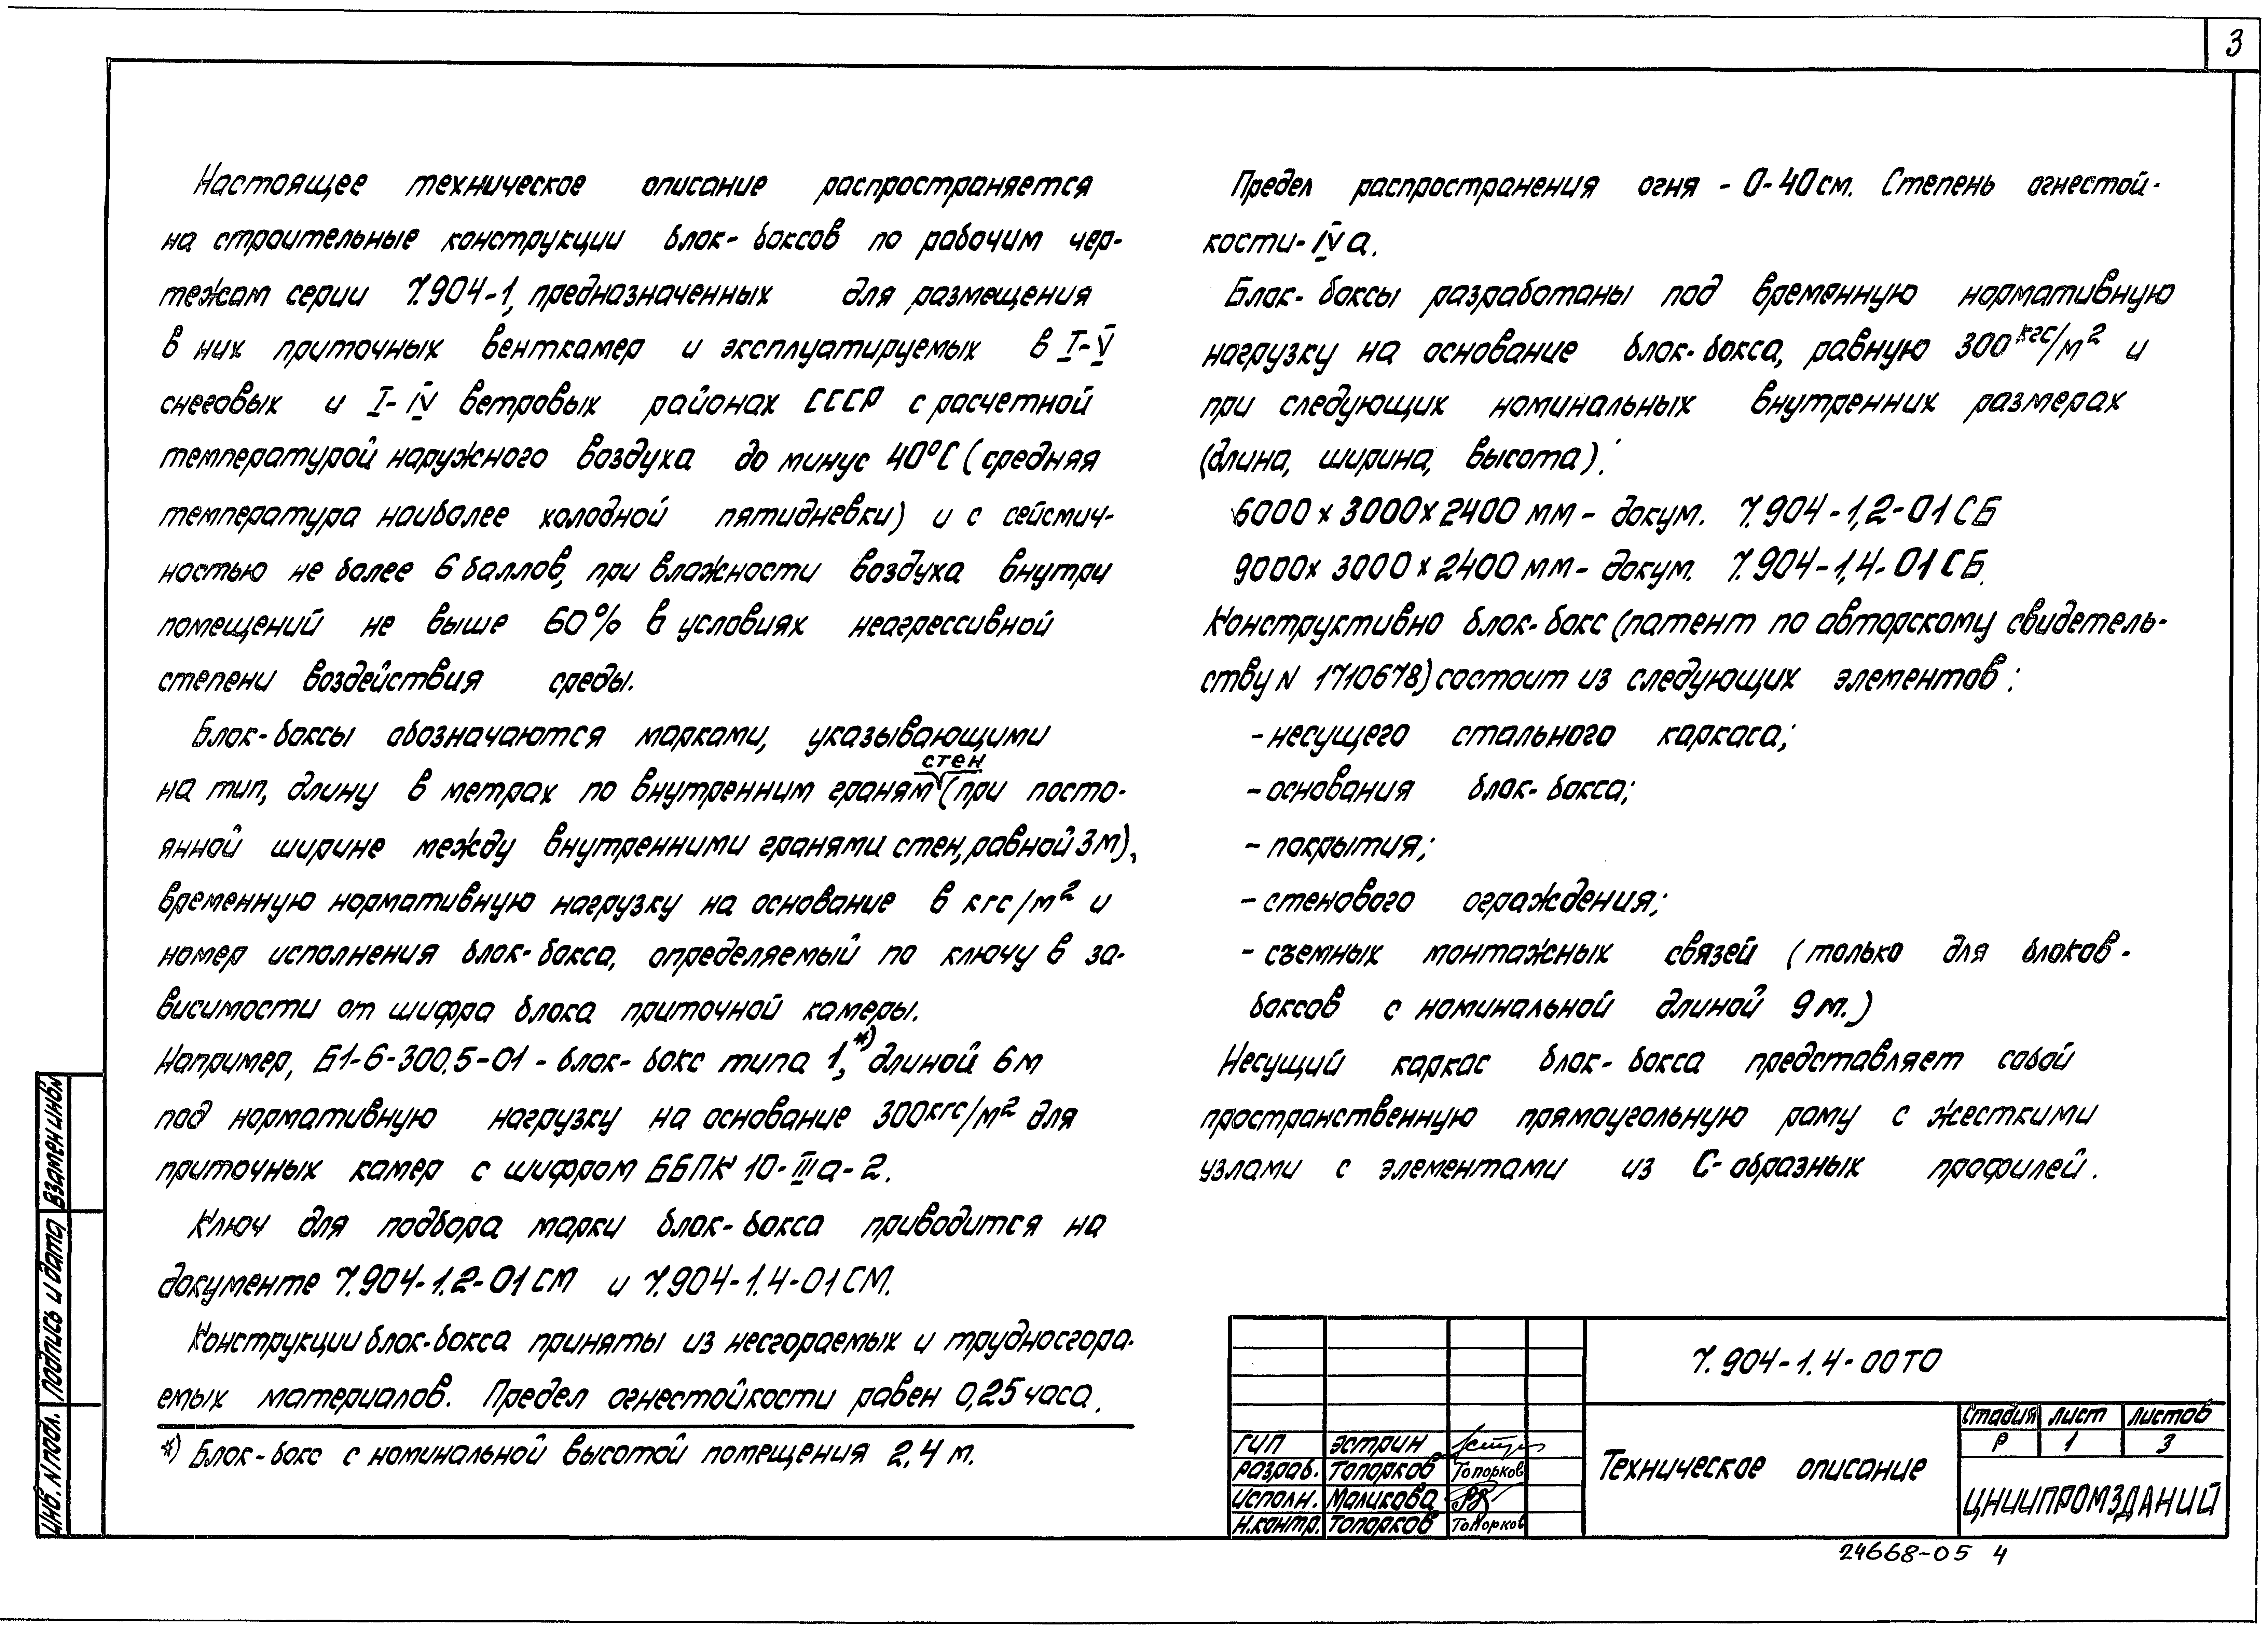 3
Настоящее техническое описание распространяется
на строительные конструкции блок-боксов по рабочим чер-
тежам серии 7.904-1, предназначенных для размещения
в них приточных венткамер и эксплуатируемых в I-V
снеговых и I-IV ветровых районах СССР с расчетной
температурой наружного воздуха до минус 40°С (средняя
температура наиболее холодной пятидневки) и с сейсмич-
ностью не более 6 баллов, при влажности воздуха внутри
помещений не выше 60% в условиях неагрессивной
степени воздействия среды.
Блок-боксы обозначаются марками, указывающими
на тип, длину в метрах по внутренним граням стен (при посто-
янной ширине между внутренними гранями стен, равной 3м),
временную нормативную нагрузку на основание в кгс/м² и
номер исполнения блок-бокса, определяемый по ключу в за-
висимости от шифра блока приточной камеры.
Например, Б1-6-300.5-01 - блок-бокс типа 1,*) длиной 6м
под нормативную нагрузку на основание 300кгс/м² для
приточных камер с шифром ББПК 10-IIIа-2.
Ключ для подбора марки блок-бокса приводится на
документе 7.904-1.2-01СМ и 7.904-1.4-01СМ.
Конструкции блок-бокса приняты из несгораемых и трудносгора-
емых материалов. Предел огнестойкости равен 0,25 часа.
*) Блок-бокс с номинальной высотой помещения 2,4 м.
Предел распространения огня - 0-40см. Степень огнестой-
кости-IVа.
Блок-боксы разработаны под временную нормативную
нагрузку на основание блок-бокса, равную 300кгс/м² и
при следующих номинальных внутренних размерах
(длина, ширина, высота):
6000х3000х2400мм - докум. 7.904-1,2-01СБ
9000х3000х2400мм - докум. 7.904-1,4-01СБ.
Конструктивно блок-бокс (патент по авторскому свидетель-
ству N 1710678) состоит из следующих элементов:
-несущего стального каркаса;
-основания блок-бокса;
-покрытия;
-стенового ограждения;
-съемных монтажных связей (только для блоков-
боксов с номинальной длиной 9м.)
Несущий каркас блок-бокса представляет собой
пространственную прямоугольную раму с жесткими
узлами с элементами из С-образных профилей.
Взамен инв.N
Подпись и дата
Инв. N подл.
7.904-1.4-00ТО
ГИП Эстрин
Разраб. Топорков Топорков
Исполн. Маликова
Н.контр. Топорков Топорков
Техническое описание
Стадия Лист Листов
Р 1 3
ЦНИИПРОМЗДАНИЙ
24668-05 4